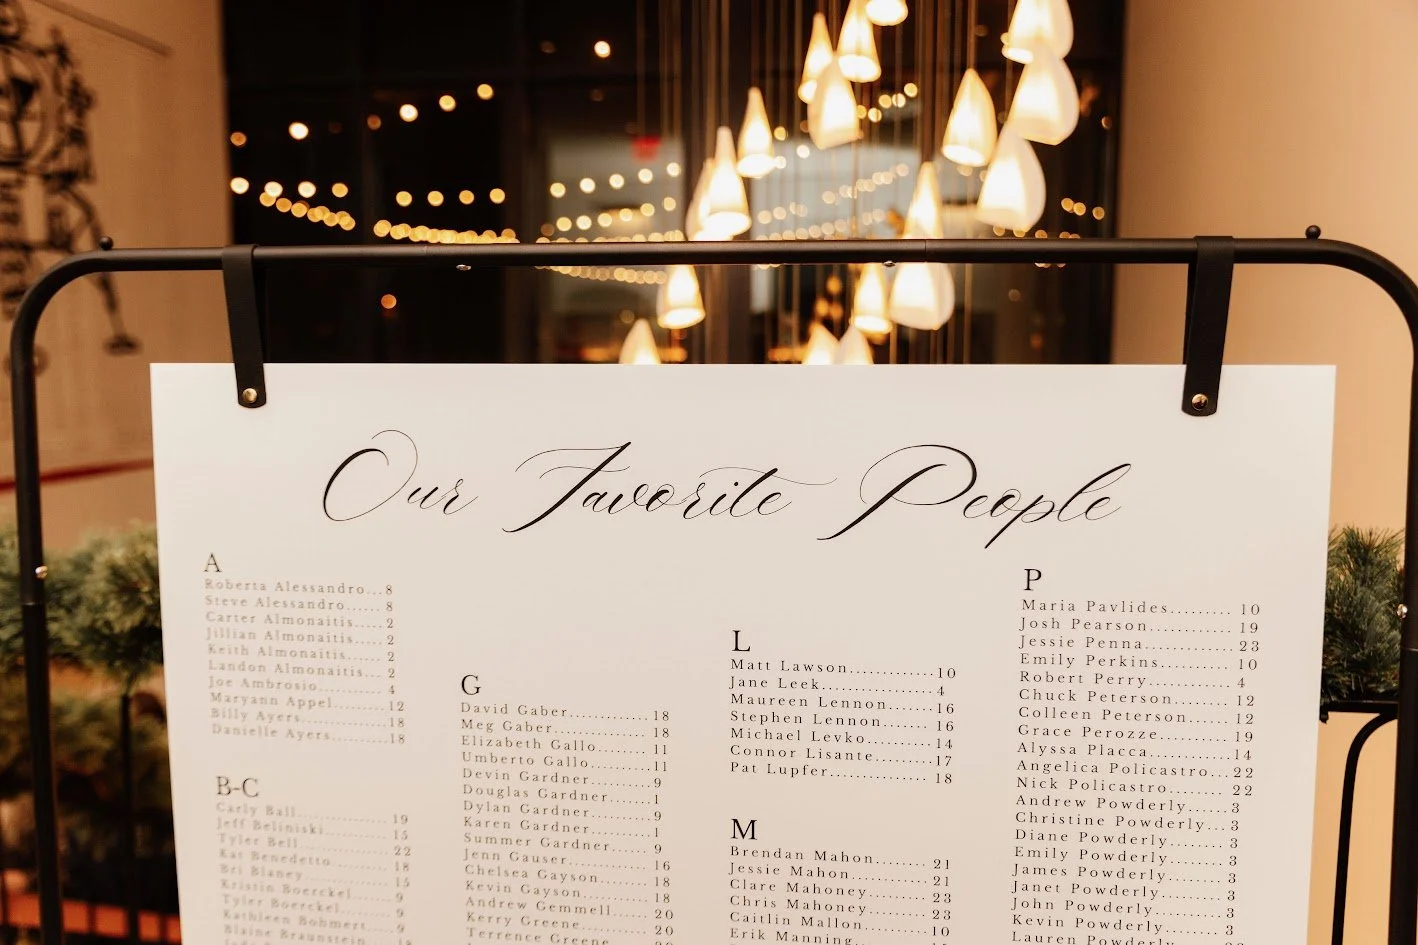 Our Favorite People
A
Roberta Alessandro...8
Steve Alessandro......8
Carter Almonaitis.....2
Jillian Almonaitis.....2
Keith Almonaitis......2
Landon Almonaitis...2
Joe Ambrosio...........4
Maryann Appel.........12
Billy Ayers..............18
Danielle Ayers.........18
B-C
Carly Ball................19
Jeff Beliniski............15
Tyler Bell................22
Kat Benedetto..........18
Bri Blaney...............15
Kristin Boerckel.......9
Tyler Boerckel.........9
Kathleen Bohmert....9
Blaine Braunstein
G
David Gaber............18
Meg Gaber..............18
Elizabeth Gallo........11
Umberto Gallo.........11
Devin Gardner.........9
Douglas Gardner......1
Dylan Gardner.........9
Karen Gardner.........1
Summer Gardner......9
Jenn Gauser............16
Chelsea Gayson.......18
Kevin Gayson..........18
Andrew Gemmell.....20
Kerry Greene...........20
Terrence Greene
L
Matt Lawson............10
Jane Leek...............4
Maureen Lennon......16
Stephen Lennon.......16
Michael Levko.........14
Connor Lisante........17
Pat Lupfer..............18
M
Brendan Mahon........21
Jessie Mahon...........21
Clare Mahoney........23
Chris Mahoney........23
Caitlin Mallon.........10
Erik Manning
P
Maria Pavlides.........10
Josh Pearson............19
Jessie Penna............23
Emily Perkins..........10
Robert Perry...........4
Chuck Peterson........12
Colleen Peterson......12
Grace Perozze.........19
Alyssa Placca..........14
Angelica Policastro...22
Nick Policastro........22
Andrew Powderly......3
Christine Powderly...3
Diane Powderly.......3
Emily Powderly.......3
James Powderly.......3
Janet Powderly........3
John Powderly.........3
Kevin Powderly.......3
Lauren Powderly